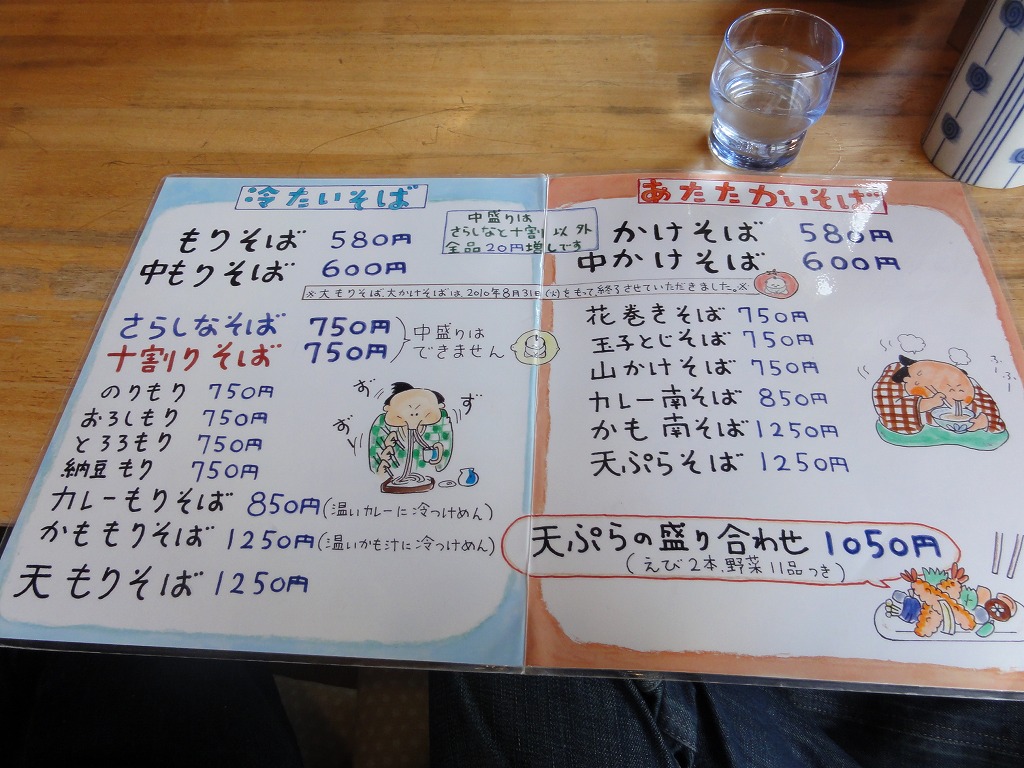 冷たいそば
もりそば 580円
中もりそば 600円
中盛りは
さらしなと十割以外
全品20円増しです
※大もりそば、大かけそばは、2010年8月31日(火)をもって、終了させていただきました。※
さらしなそば 750円
十割りそば 750円
中盛りは
できません
のりもり 750円
おろしもり 750円
とろろもり 750円
納豆もり 750円
カレーもりそば 850円(温いカレーに冷つけめん)
かももりそば 1250円(温いかも汁に冷つけめん)
天もりそば 1250円
ず〃
ず〃
ず〃
あたたかいそば
かけそば 580円
中かけそば 600円
花巻きそば 750円
玉子とじそば 750円
山かけそば 750円
カレー南そば 850円
かも南そば 1250円
天ぷらそば 1250円
ふー
ふー
天ぷらの盛り合わせ 1050円
(えび2本、野菜11品つき)